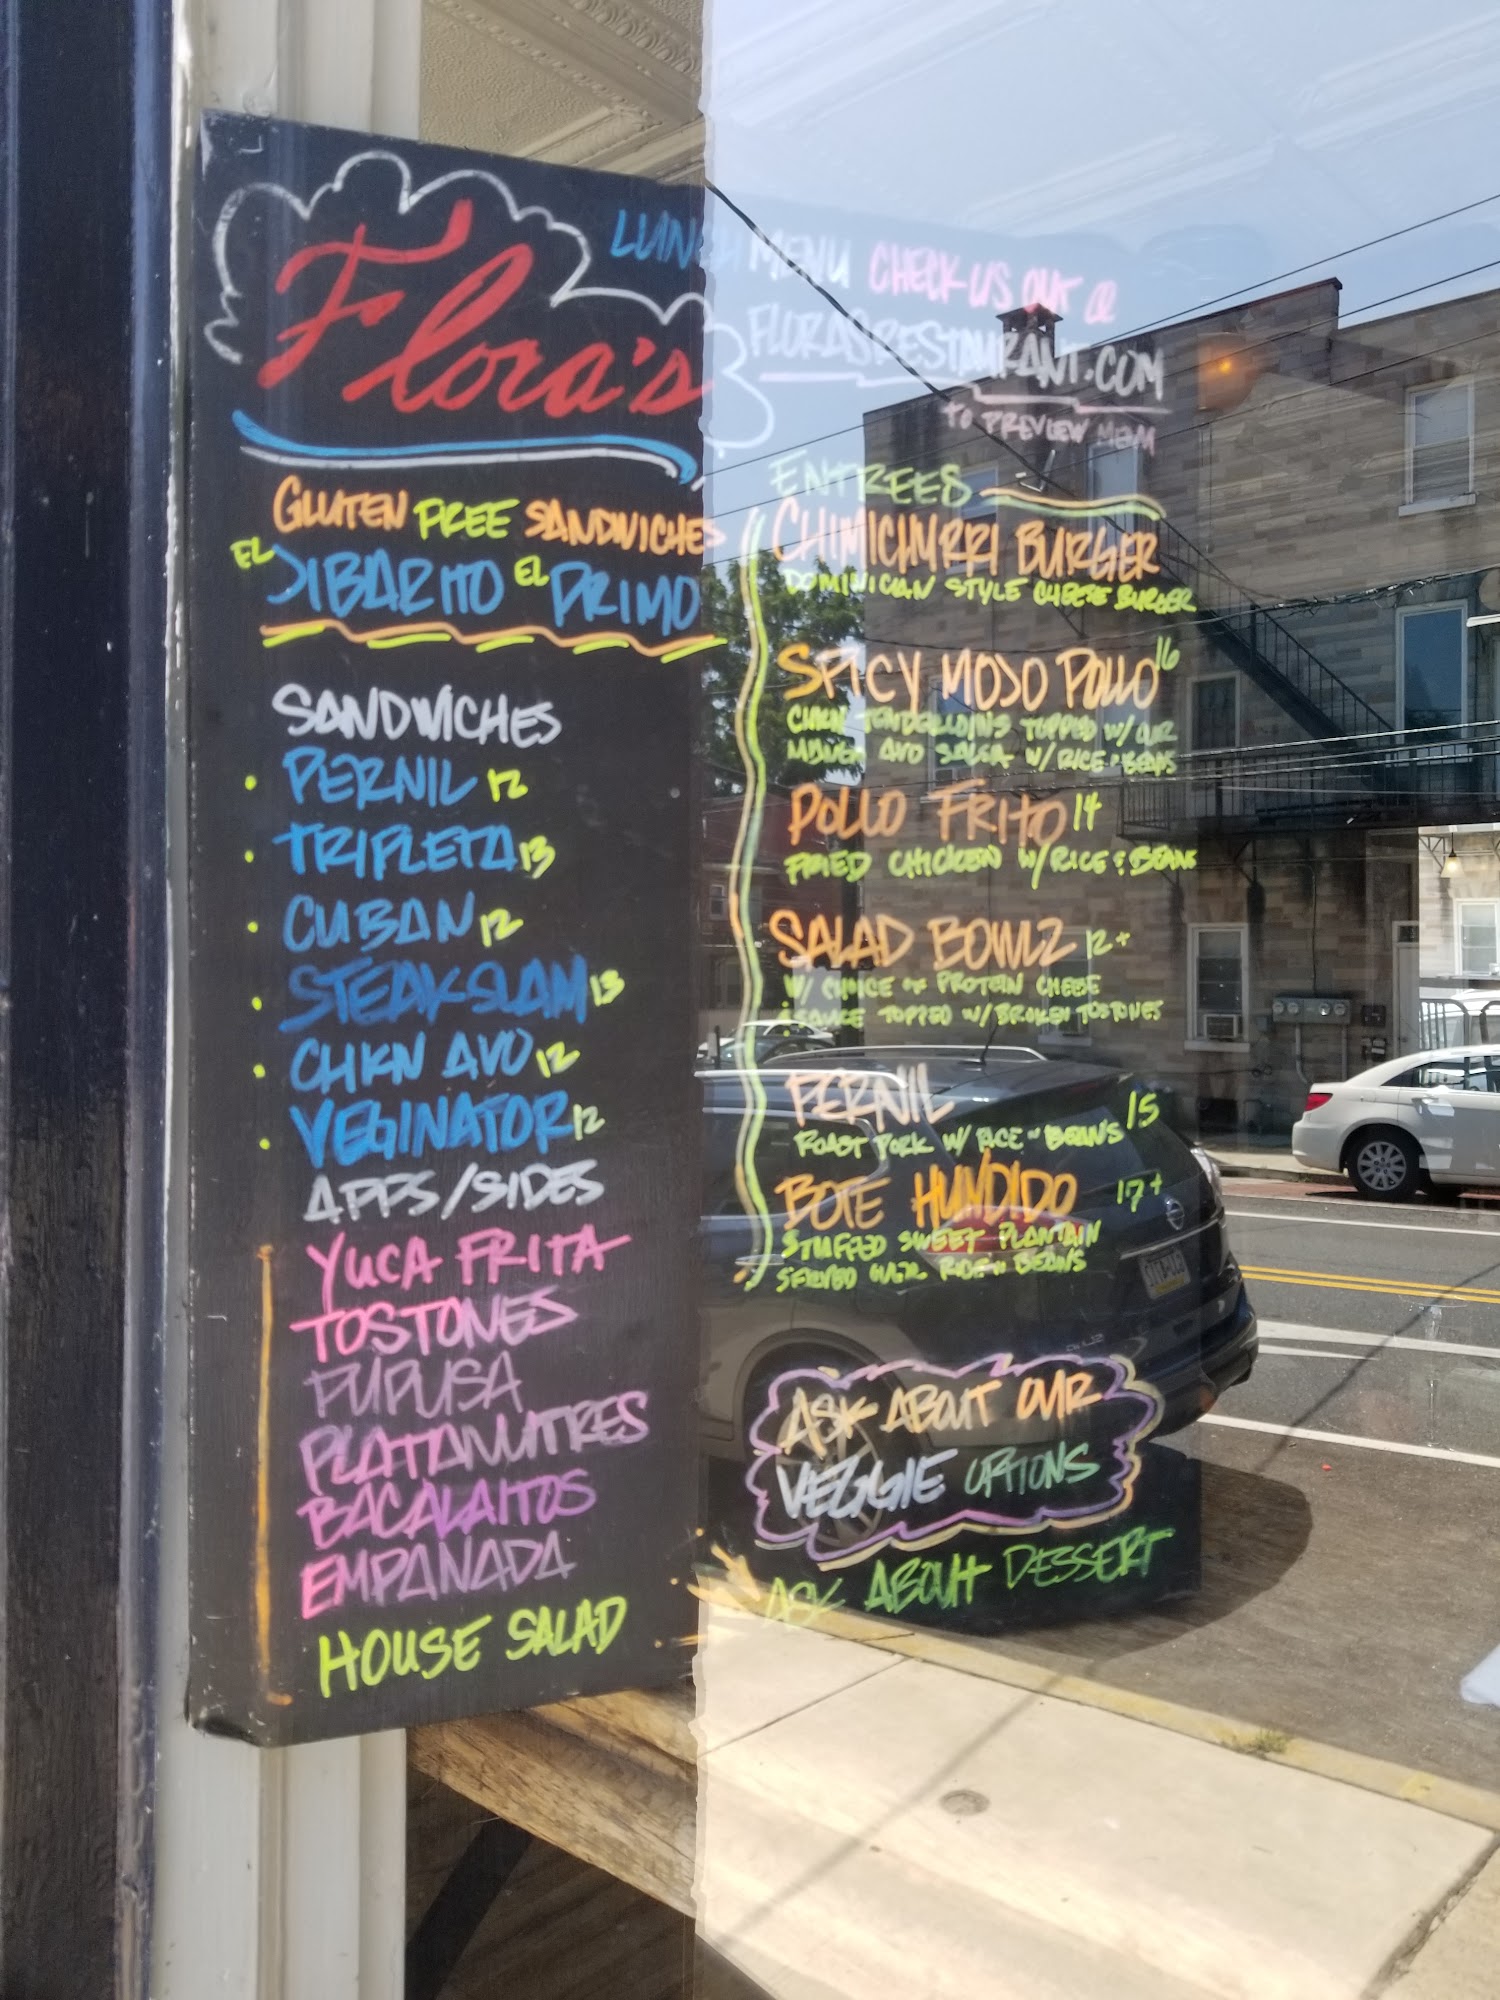 Flora's
LUNCH MENU CHECK US OUT @
FLORASRESTAURANT.COM
TO PREVIEW MENU
GLUTEN FREE SANDWICHES
EL JIBARITO EL PRIMO
SANDWICHES
• PERNIL 12
• TRIPLETA 13
• CUBAN 12
• STEAK SLAM 13
• CHKN AVO 12
• VEGINATOR 12
APPS/SIDES
YUCA FRITA
TOSTONES
PUPUSA
PLATANUTRES
BACALAITOS
EMPANADA
HOUSE SALAD
ENTREES
CHIMICHURRI BURGER
DOMINICAN STYLE CHEESE BURGER
SPICY MOJO POLLO 16
CHKN TENDERLOINS TOPPED W/ OUR
MANGO AVO SALSA W/ RICE & BEANS
POLLO FRITO 14
FRIED CHICKEN W/ RICE & BEANS
SALAD BOWLZ 12+
W/ CHOICE OF PROTEIN CHEESE
& SAUCE TOPPED W/ BROKEN TOSTONES
PERNIL 15
ROAST PORK W/ RICE & BEANS
BOTE HUNDIDO 17+
STUFFED SWEET PLANTAIN
SERVED OVER RICE & BEANS
ASK ABOUT OUR
VEGGIE OPTIONS
ASK ABOUT DESSERT